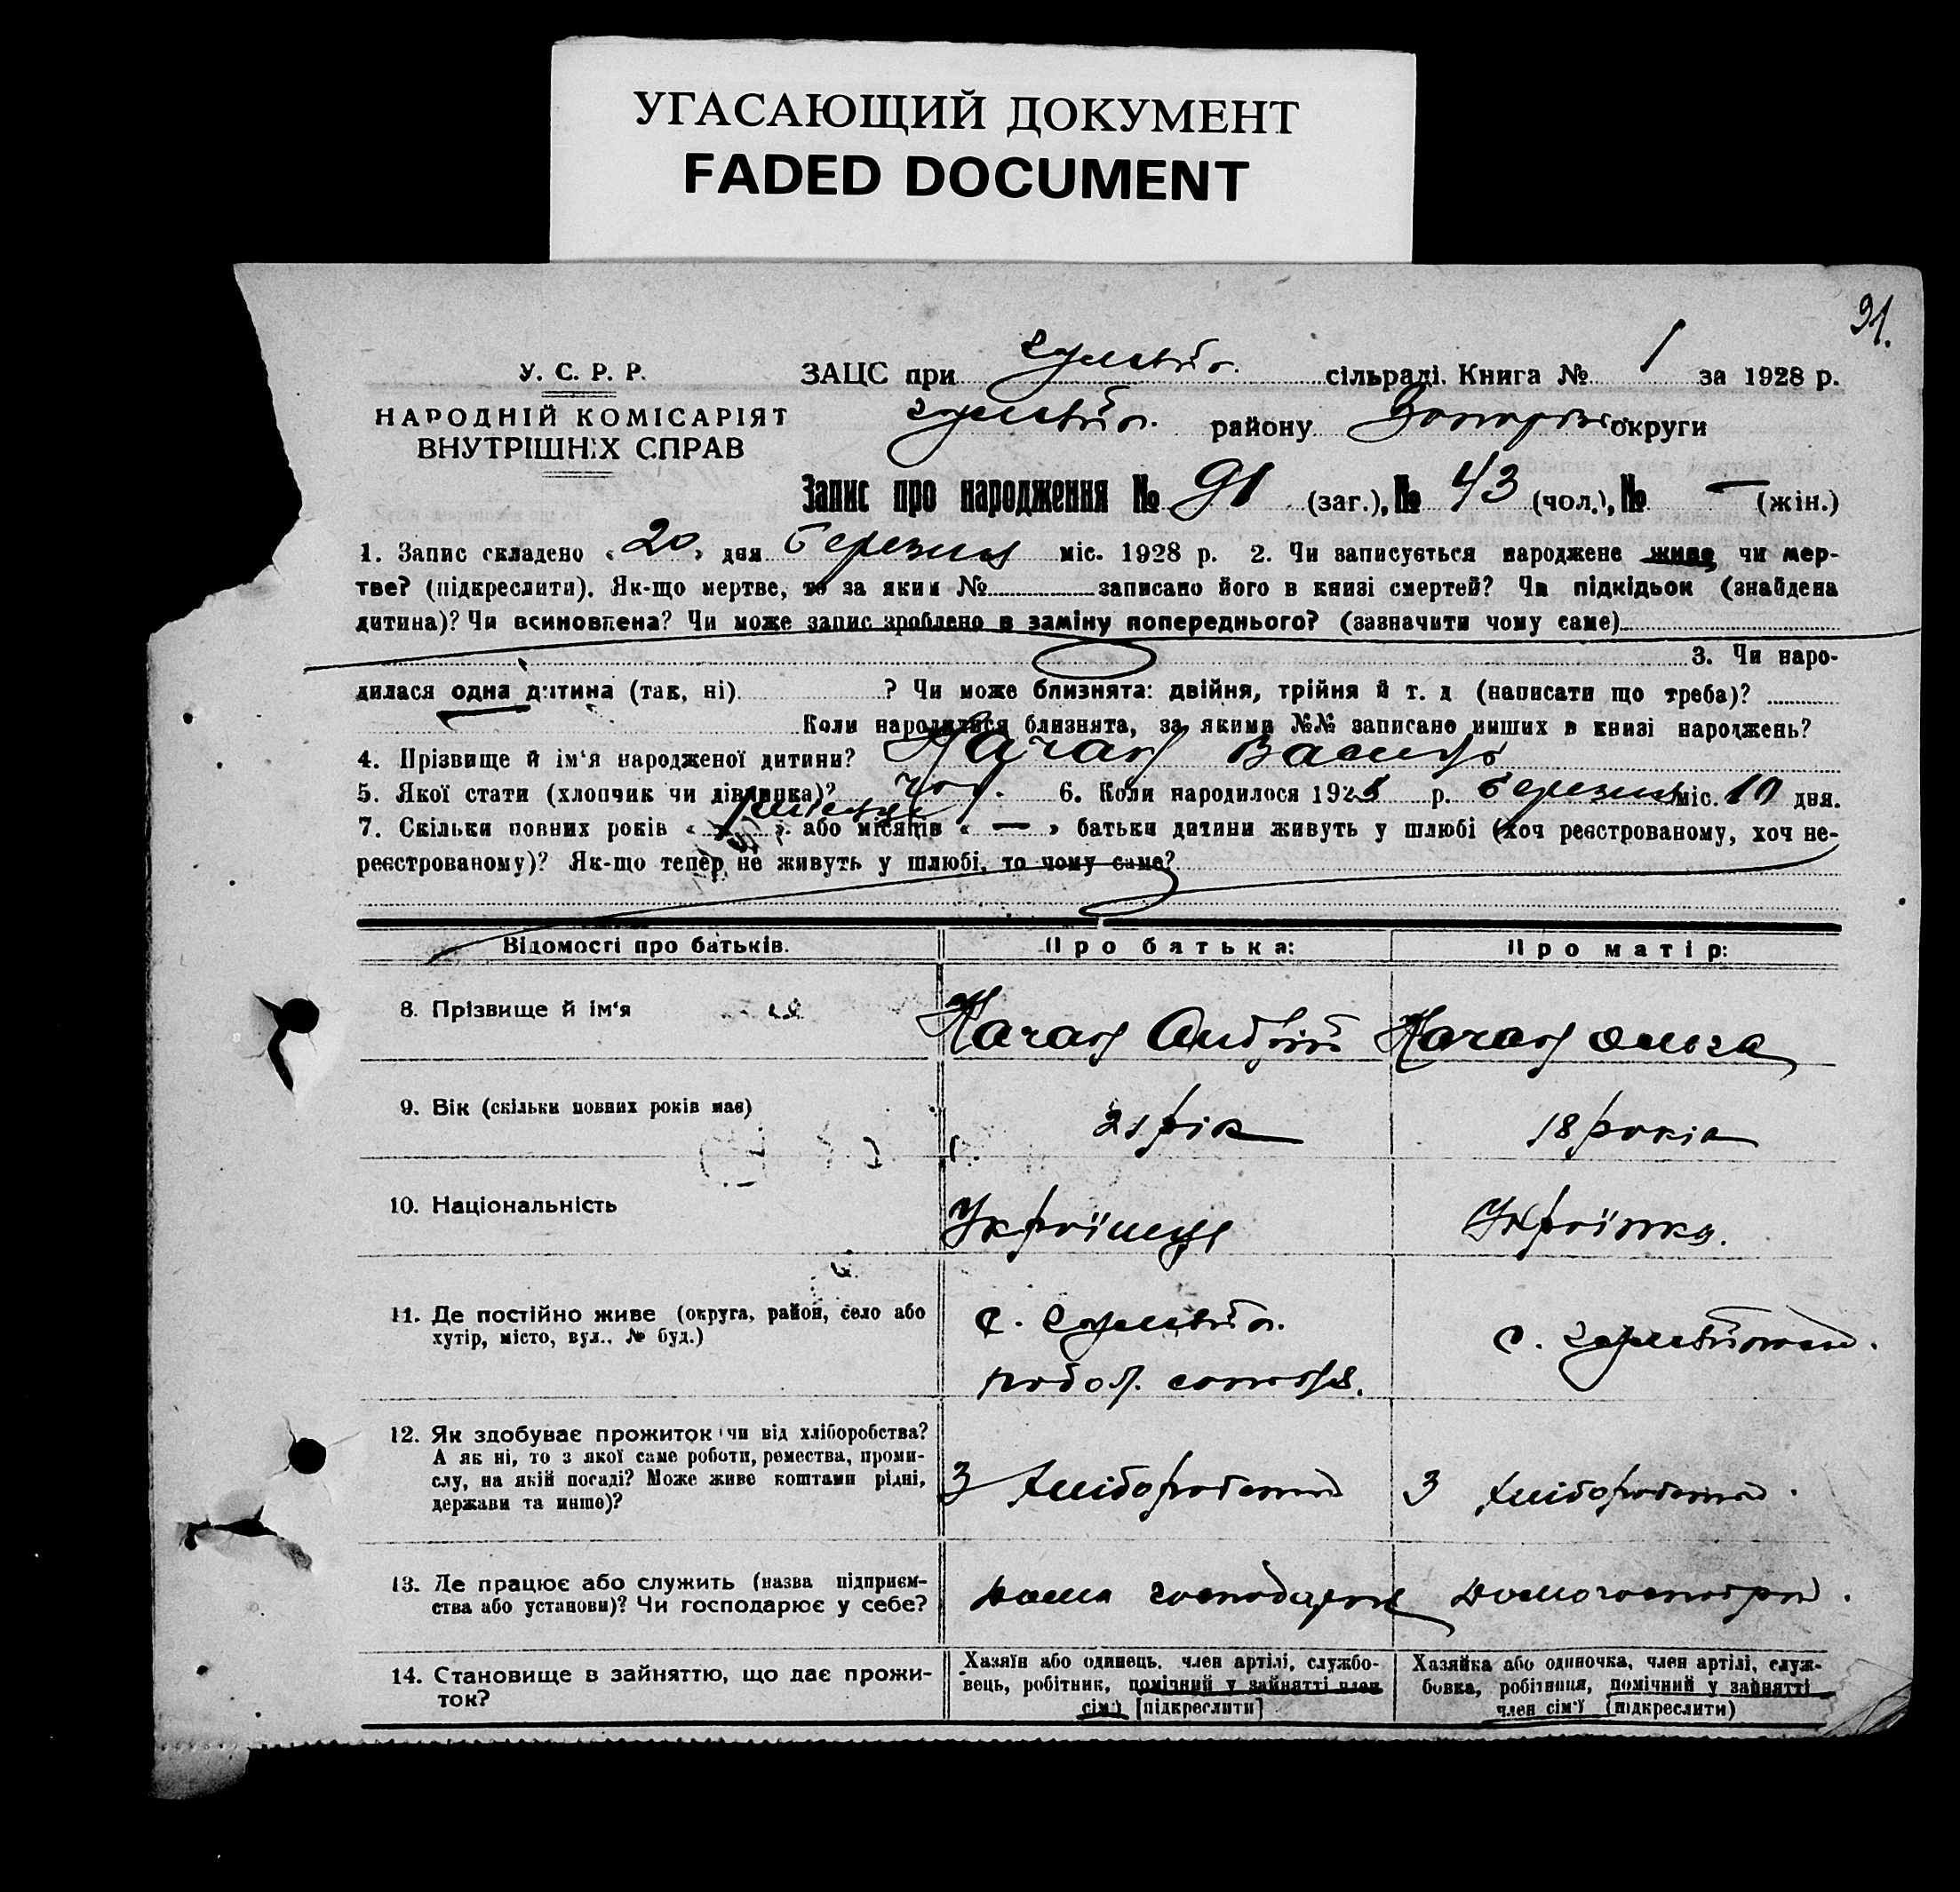 УГАСАЮЩИЙ ДОКУМЕНТ
FADED DOCUMENT
91.
У. С. Р. Р.
НАРОДНІЙ КОМІСАРІЯТ
ВНУТРІШНІХ СПРАВ
ЗАЦС при сільраді. Книга № 1 за 1928 р.
району округи
Запис про народження № 91 (заг.), № 43 (чол.), № — (жін.)
1. Запис складено «20» дня березня міс. 1928 р. 2. Чи записується народжене живе чи мер-
тве? (підкреслити). Як-що мертве, то за яким № записано його в книзі смертей? Чи підкідьок (знайдена
дитина)? Чи всиновлена? Чи може запис зроблено в заміну попереднього? (зазначити чому саме)
3. Чи наро-
дилася одна дитина (так, ні) ? Чи може близнята: двійня, трійня й т. д (написати що треба)?
Коли народилися близнята, за якими №№ записано инших в книзі народжень?
4. Прізвище й ім'я народженої дитини? Качан Василь
5. Якої стати (хлопчик чи дівчинка)? чол. 6. Коли народилося 1928 р. березня міс. 10 дня.
7. Скільки повних років « » або місяців « — » батьки дитини живуть у шлюбі (хоч реєстрованому, хоч не-
реєстрованому)? Як-що тепер не живуть у шлюбі, то чому саме?
Відомості про батьків. Про батька: Про матір:
8. Прізвище й ім'я Качан Андрій Качан Ольга
9. Вік (скільки повних років має) 21 рік 18 років
10. Національність Українець Українка.
11. Де постійно живе (округа, район, село або
хутір, місто, вул., № буд.)
12. Як здобуває прожиток чи від хліборобства?
А як ні, то з якої саме роботи, ремества, проми-
слу, на якій посаді? Може живе коштами рідні,
держави та инше)?
З хліборобства З хліборобства.
13. Де працює або служить (назва підприєм-
ства або установи)? Чи господарює у себе?
14. Становище в зайняттю, що дає прожи-
ток?
Хазяїн або одинець, член артілі, службо-
вець, робітник, помічний у зайнятті член
сім'ї [підкреслити]
Хазяйка або одиночка, член артілі, служ-
бовка, робітниця, помічний у зайнятті
член сім'ї (підкреслити)